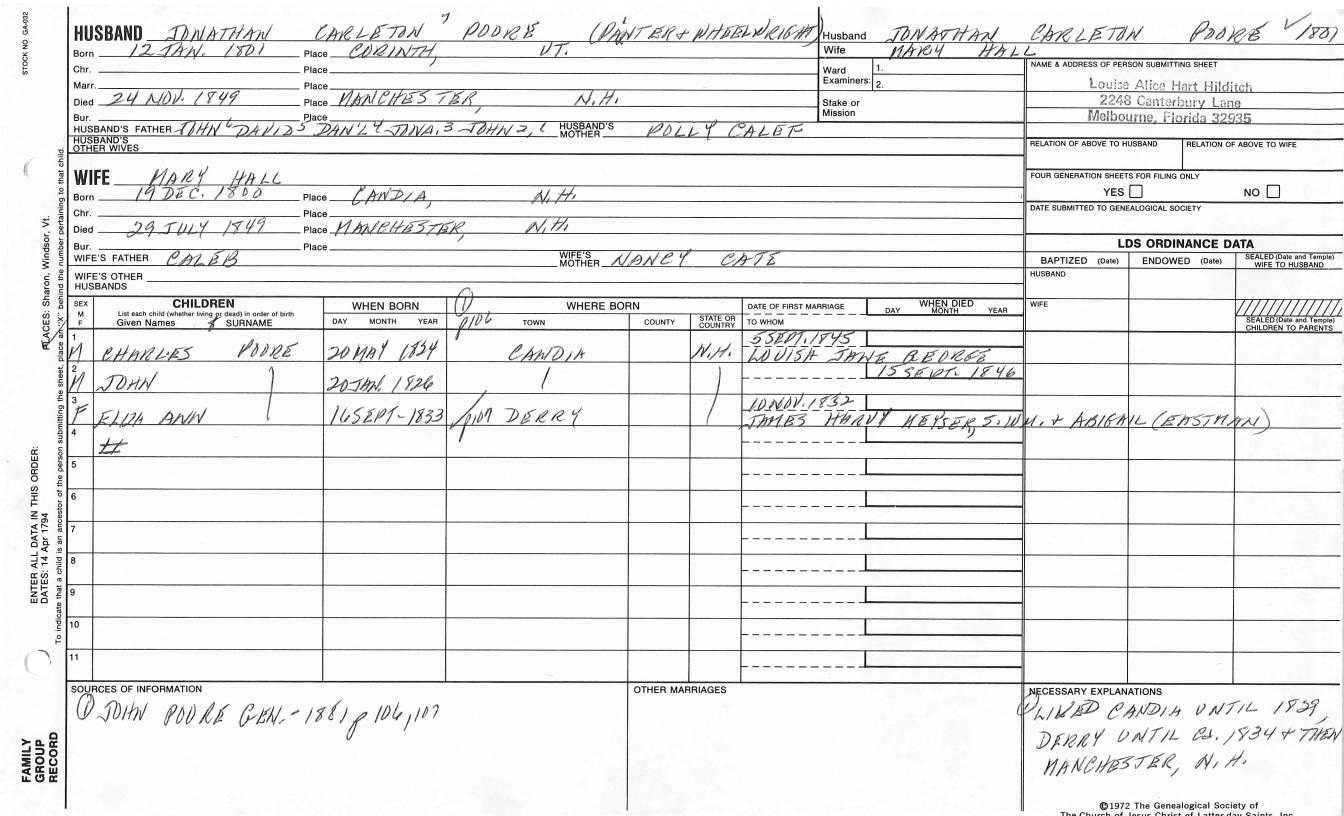 STOCK NO. GA-032
HUSBAND JONATHAN CARLETON 7 POORE (PAINTER + WHEELWRIGHT)
Born 12 JAN. 1801 Place CORINTH, VT.
Chr. Place
Marr. Place
Died 24 NOV. 1849 Place MANCHESTER, N.H.
Bur. Place
HUSBAND'S FATHER JOHN 6 DAVID 5 DAN'L 4 JONA. 3 JOHN 2, 1 HUSBAND'S MOTHER POLLY CALEF
HUSBAND'S OTHER WIVES
Husband JONATHAN CARLETON POORE ✓ 1801
Wife MARY HALL
Ward Examiners: 1.
2.
Stake or Mission
NAME & ADDRESS OF PERSON SUBMITTING SHEET
Louise Alice Hart Hilditch
2248 Canterbury Lane
Melbourne, Florida 32935
RELATION OF ABOVE TO HUSBAND RELATION OF ABOVE TO WIFE
FOUR GENERATION SHEETS FOR FILING ONLY
YES NO
DATE SUBMITTED TO GENEALOGICAL SOCIETY
WIFE MARY HALL
Born 19 DEC. 1800 Place CANDIA, N.H.
Chr. Place
Died 29 JULY 1849 Place MANCHESTER, N.H.
Bur. Place
WIFE'S FATHER CALEB WIFE'S MOTHER NANCY CATE
WIFE'S OTHER HUSBANDS
LDS ORDINANCE DATA
BAPTIZED (Date) ENDOWED (Date) SEALED (Date and Temple) WIFE TO HUSBAND
HUSBAND
WIFE
SEALED (Date and Temple) CHILDREN TO PARENTS
SEX M F
CHILDREN
List each child (whether living or dead) in order of birth
Given Names SURNAME
WHEN BORN
DAY MONTH YEAR
① p106
WHERE BORN
TOWN COUNTY STATE OR COUNTRY
DATE OF FIRST MARRIAGE
TO WHOM
WHEN DIED
DAY MONTH YEAR
1 M CHARLES POORE 20 MAY 1824 CANDIA N.H. 5 SEPT. 1845
LOUISA JANE GEORGE
2 M JOHN 20 JAN. 1826 15 SEPT. 1846
3 F ELIZA ANN 16 SEPT - 1833 p107 DERRY 10 NOV. 1832
JAMES HARVY KEYSER, S. WM. + ABIGAIL (EASTMAN)
4
5
6
7
8
9
10
11
SOURCES OF INFORMATION
① JOHN POORE GEN. - 1881 p 106, 107
OTHER MARRIAGES
NECESSARY EXPLANATIONS
① LIVED CANDIA UNTIL 1829,
DERRY UNTIL CA. 1834 + THEN
MANCHESTER, N.H.
©1972 The Genealogical Society of
The Church of Jesus Christ of Latter-day Saints, Inc.
FAMILY
GROUP
RECORD
ENTER ALL DATA IN THIS ORDER:
DATES: 14 Apr 1794
PLACES: Sharon, Windsor, Vt.
To indicate that a child is an ancestor of the person submitting the sheet, place an "X" behind the number pertaining to that child.